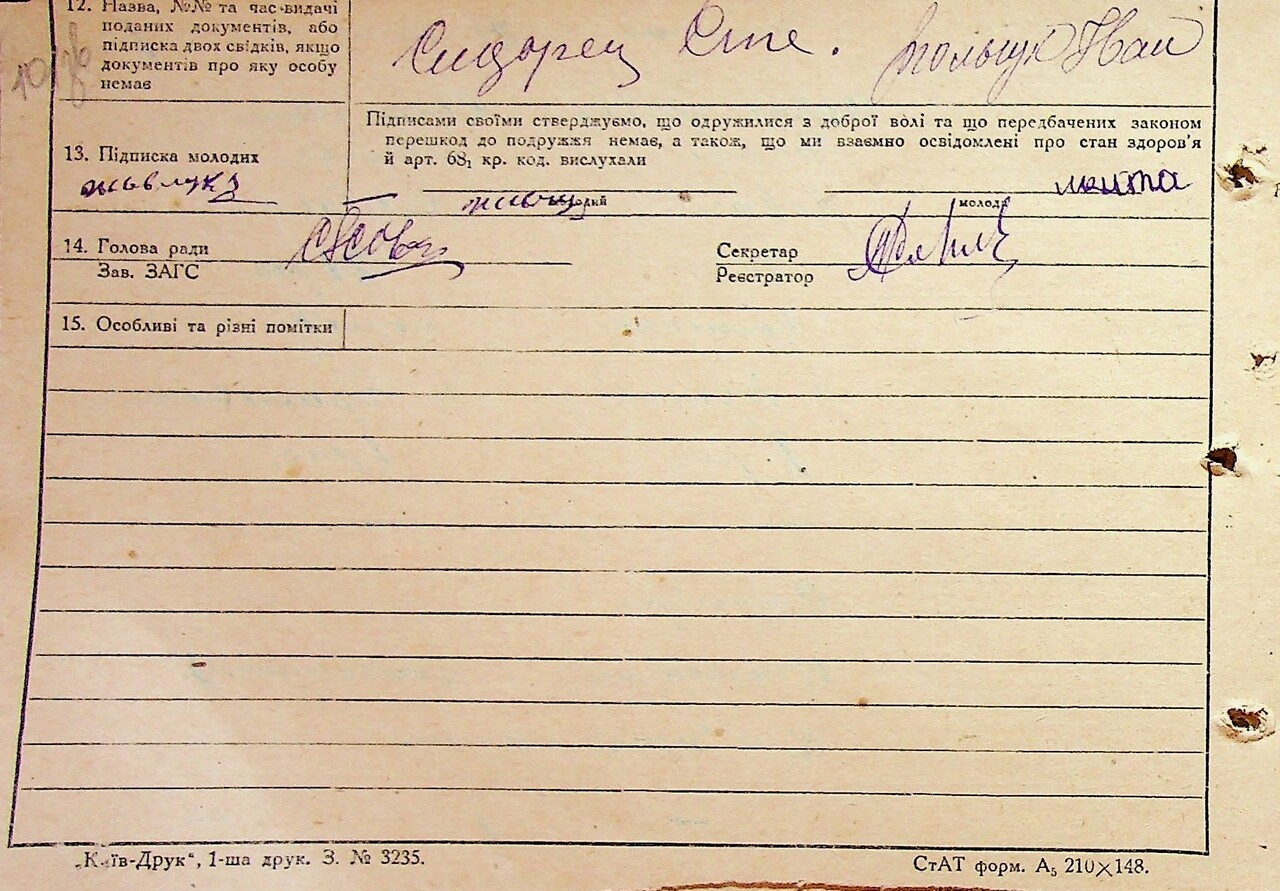 12. Назва, №№ та час видачі
поданих документів, або
підписка двох свідків, якщо
документів про яку особу
немав
Сидорец Сте.
Підписами своїми стверджуємо, що одружилися з доброї волі та що передбачених законом
перешкод до подружжя немає, а також, що ми взаємно освідомлені про стан здоров'я
й арт. 68₁ кр. код. вислухали
13. Підписка молодих
молода
14. Голова ради
Зав. ЗАГС
Секретар
Реєстратор
15. Особливі та різні помітки
„Київ-Друк“, 1-ша друк. З. № 3235.
СтАТ форм. А₅ 210×148.